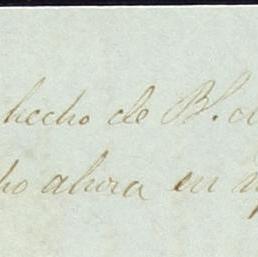 hecho de B.
ahora en